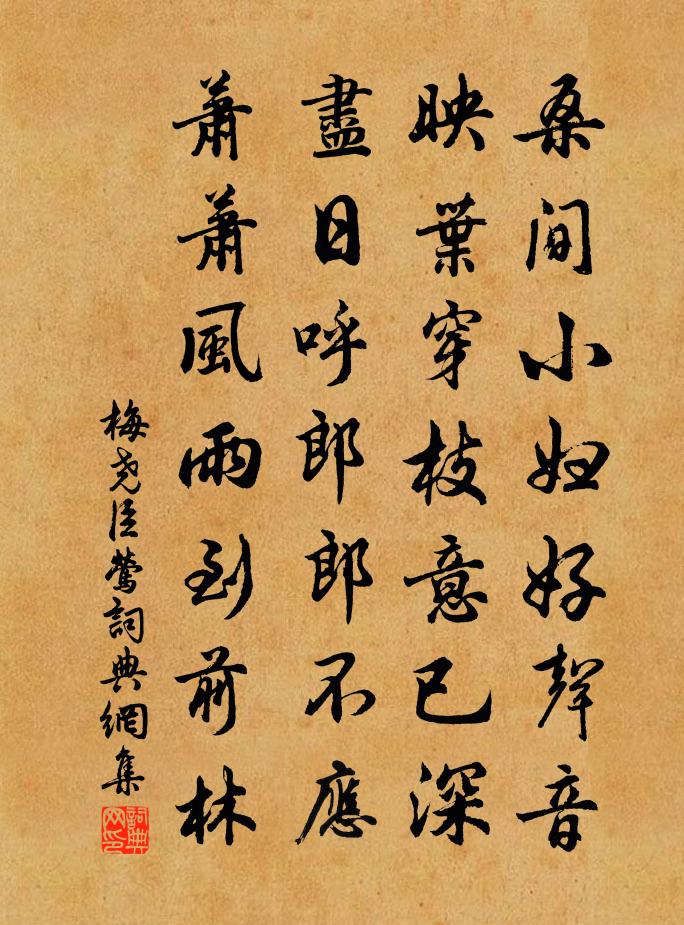 桑間小妇好聲音
映葉穿枝意已深
盡日呼郎郎不應
蕭蕭風雨到前林
梅尧臣鶯詞典網集
詞典网印